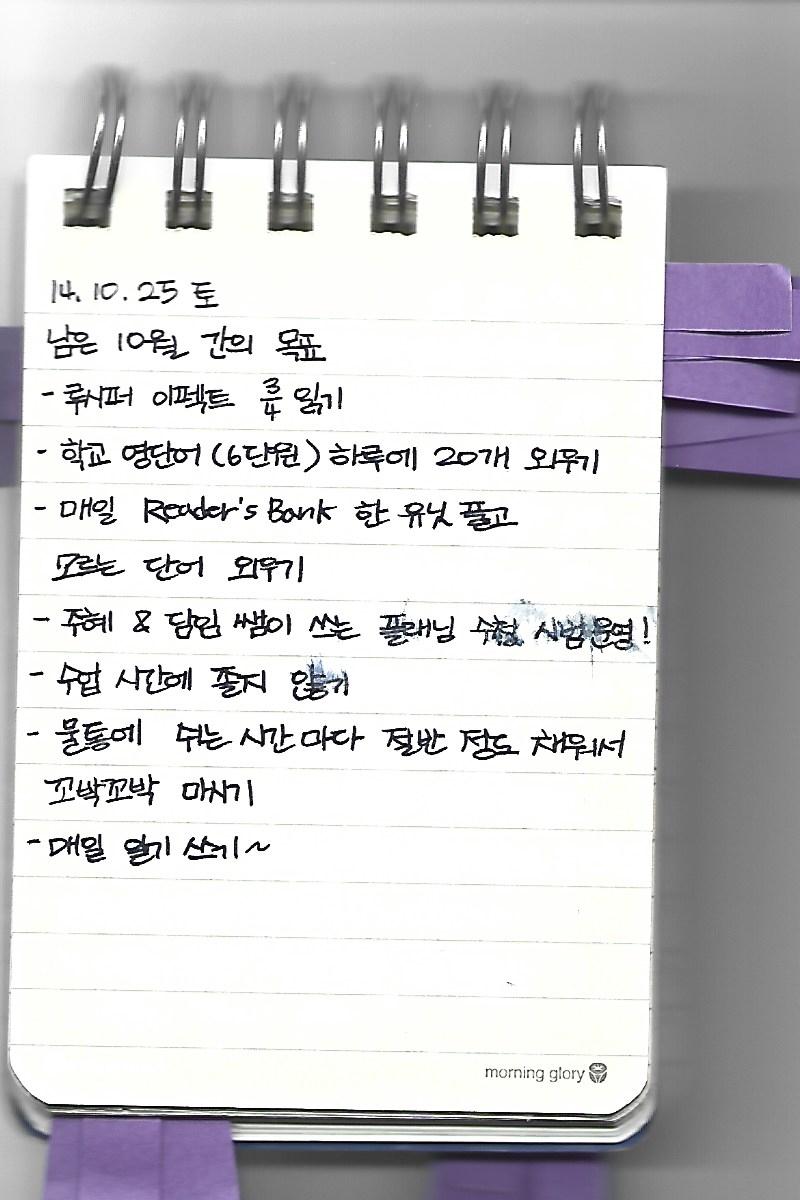 14.10.25 토
남은 10월 간의 목표
- 루시퍼 이펙트 3/4 읽기
- 학교 영단어 (6단원) 하루에 20개 외우기
- 매일 Reader's Bank 한 유닛 풀고
모르는 단어 외우기
- 주혜 & 담임 쌤이 쓰는 플래닝 수첩 시범운영!
- 수업 시간에 졸지 않기
- 물통에 쉬는 시간 마다 절반 정도 채워서
꼬박꼬박 마시기
- 매일 일기 쓰기~
morning glory